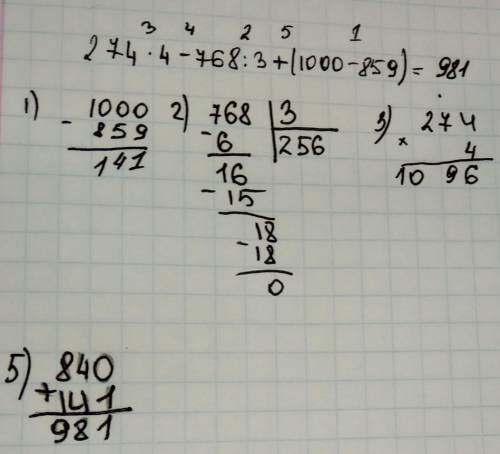 3 4 2 5 1
274 · 4 - 768 : 3 + (1000 - 859) = 981
1) 1000 2) 768 3 3) 274
- 859 - 6 256 × 4
141 16 1096
- 15
18
- 18
0
5) 840
+ 141
981